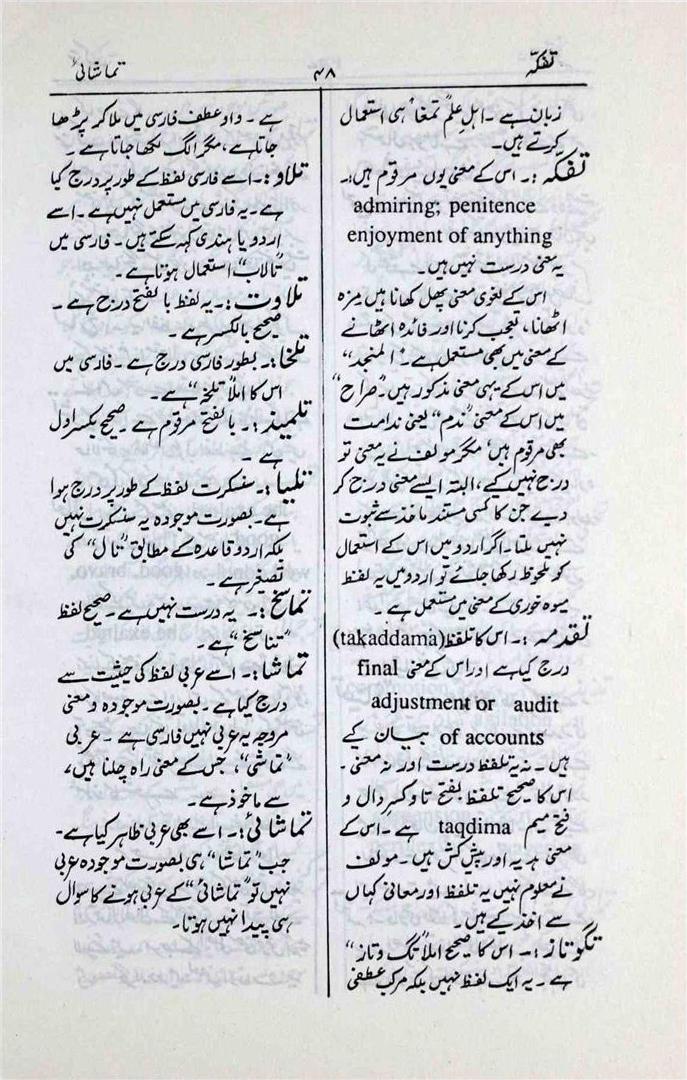 تفکّہ
۴۸
تماشائیؔ
زبان ہے ۔ اہلِ علم تمغا ہی استعمال
کرتے ہیں۔
تفکّہ :۔ اس کے معنی یوں مرقوم ہیں:۔
admiring; penitence
enjoyment of anything
یہ معنی درست نہیں ہیں۔
اس کے لغوی معنی پھل کھانا ہیں مزہ
اٹھانا، تعجب کرنا اور فائدہ اٹھانے
کے معنی میں بھی مستعمل ہے۔ "المنجد"
میں اس کے یہی معنی مذکور ہیں۔ "صراح"
میں اس کے معنی "ندم" یعنی ندامت
بھی مرقوم ہیں، مگر مولف نے یہ معنی تو
درج نہیں کیے، البتہ ایسے معنی درج کر
دیے جن کا کسی مستند ماخذ سے ثبوت
نہیں ملتا۔ اگر اردو میں اس کے استعمال
کو ملحوظ رکھا جائے تو اردو میں یہ لفظ
میوہ خوری کے معنی میں مستعمل ہے ۔
تقدمہ :۔ اس کا تلفظ (takaddama)
درج کیا ہے اور اس کے معنی final
adjustment or audit
of accounts بیان کیے
ہیں ۔ نہ یہ تلفظ درست اور نہ معنی ۔
اس کا صحیح تلفظ بفتح تا و کسرِ دال و
فتح میم taqdima ہے ۔ اس کے
معنی ہدیہ اور پیش کش ہیں ۔ مولف
نے معلوم نہیں یہ تلفظ اور معانی کہاں
سے اخذ کیے ہیں۔
تگوتاز :۔ اس کا صحیح املا "تگ و تاز"
ہے ۔ یہ ایک لفظ نہیں بلکہ مرکب عطفی
ہے ۔ واو عطف فارسی میں ملا کر پڑھا
جاتا ہے، مگر الگ لکھا جاتا ہے ۔
تلاو :۔ اسے فارسی لفظ کے طور پر درج کیا
ہے ۔ یہ فارسی میں مستعمل نہیں ہے ۔ اسے
اردو یا ہندی کہہ سکتے ہیں ۔ فارسی میں
"تالاب" استعمال ہوتا ہے ۔
تلاوت :۔ یہ لفظ بالفتح درج ہے ۔
صحیح بالکسر ہے ۔
تلخا :۔ بطور فارسی درج ہے ۔ فارسی میں
اس کا املا "تلخہ" ہے ۔
تلمیذ :۔ بالفتح مرقوم ہے ۔ صحیح بکسر اول
ہے ۔
تلیا :۔ سنسکرت لفظ کے طور پر درج ہوا
ہے ۔ بصورت موجودہ یہ سنسکرت نہیں
بلکہ اردو قاعدہ کے مطابق "تال" کی
تصغیر ہے ۔
تماسخ :۔ یہ درست نہیں ہے ۔ صحیح لفظ
"تناسخ" ہے ۔
تماشا :۔ اسے عربی لفظ کی حیثیت سے
درج کیا ہے ۔ بصورت موجودہ و معنی
مروجہ یہ عربی نہیں فارسی ہے ۔ عربی
"تماشی"، جس کے معنی راہ چلنا ہیں،
سے ماخوذ ہے ۔
تماشائی :۔ اسے بھی عربی ظاہر کیا ہے ۔
جب "تماشا" ہی بصورت موجودہ عربی
نہیں تو "تماشائی" کے عربی ہونے کا سوال
ہی پیدا نہیں ہوتا۔